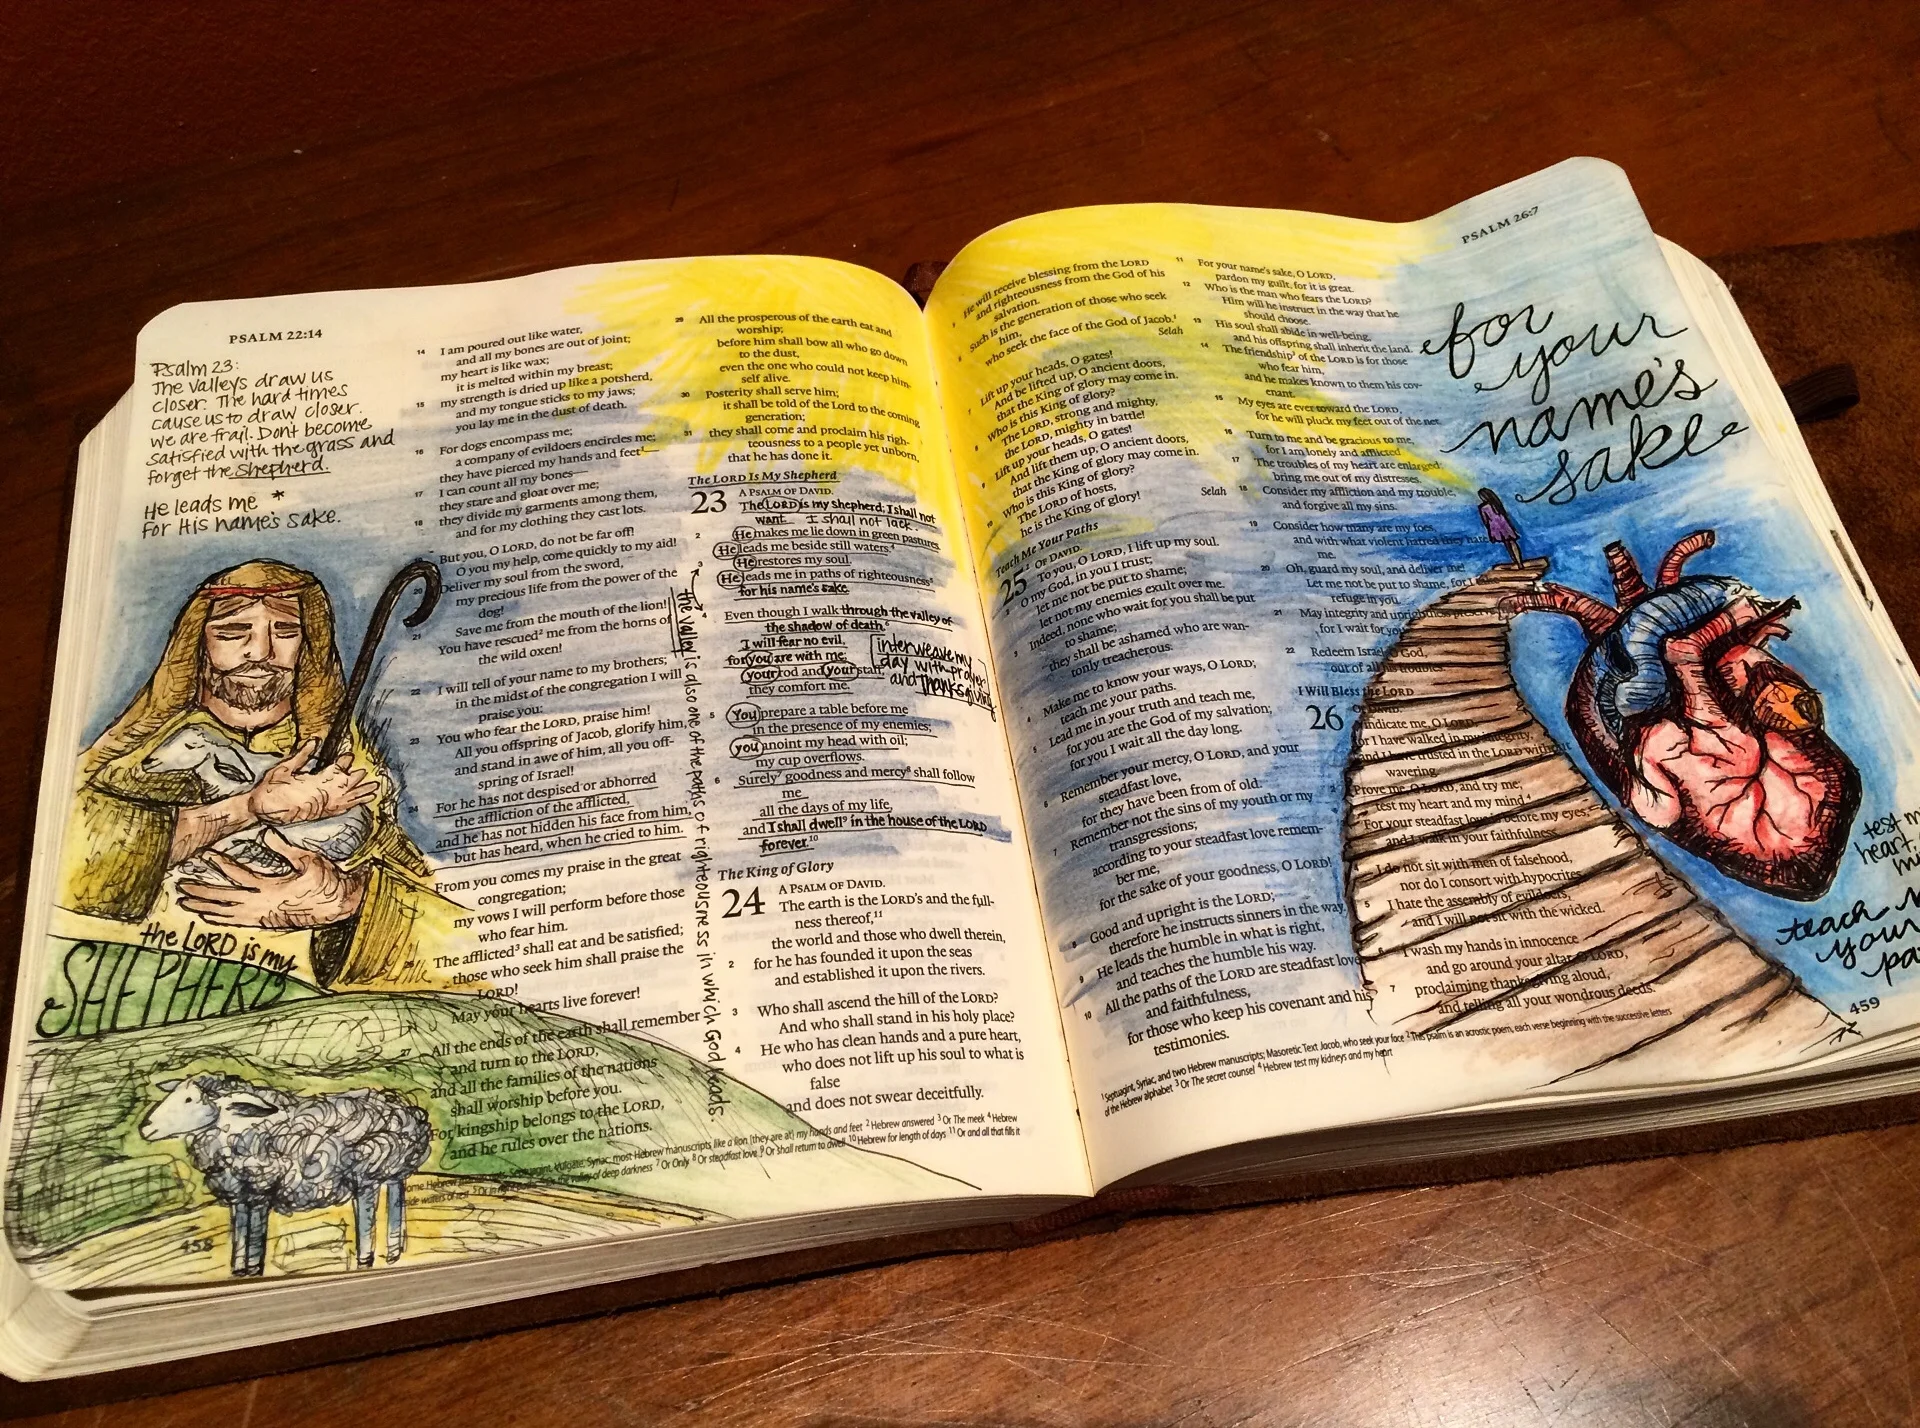 PSALM 22:14
Psalm 23:
The valleys draw us
closer. The hard times
cause us to draw closer.
we are frail. Dont become
satisfied with the grass and
forget the Shepherd.
He leads me *
for His name's sake.
the LORD is my
SHEPHERD
458
14 I am poured out like water,
and all my bones are out of joint;
my heart is like wax;
it is melted within my breast;
15 my strength is dried up like a potsherd,
and my tongue sticks to my jaws;
you lay me in the dust of death.
16 For dogs encompass me;
a company of evildoers encircles me;
they have pierced my hands and feet¹—
17 I can count all my bones—
they stare and gloat over me;
18 they divide my garments among them,
and for my clothing they cast lots.
But you, O LORD, do not be far off!
O you my help, come quickly to my aid!
20 Deliver my soul from the sword,
my precious life from the power of the
dog!
21 Save me from the mouth of the lion!
You have rescued² me from the horns of
the wild oxen!
22 I will tell of your name to my brothers;
in the midst of the congregation I will
praise you:
23 You who fear the LORD, praise him!
All you offspring of Jacob, glorify him,
and stand in awe of him, all you off-
spring of Israel!
24 For he has not despised or abhorred
the affliction of the afflicted,
and he has not hidden his face from him,
but has heard, when he cried to him.
From you comes my praise in the great
congregation;
my vows I will perform before those
who fear him.
26 The afflicted³ shall eat and be satisfied;
those who seek him shall praise the
LORD!
May your hearts live forever!
27 All the ends of the earth shall remember
and turn to the LORD,
and all the families of the nations
shall worship before you.
For kingship belongs to the LORD,
and he rules over the nations.
the valley is also one of the paths of righteousness in which God leads.
29 All the prosperous of the earth eat and
worship;
before him shall bow all who go down
to the dust,
even the one who could not keep him-
self alive.
30 Posterity shall serve him;
it shall be told of the Lord to the coming
generation;
31 they shall come and proclaim his righ-
teousness to a people yet unborn,
that he has done it.
The LORD Is My Shepherd
23 A PSALM OF DAVID.
The LORD is my shepherd; I shall not
want. I shall not lack.
2 He makes me lie down in green pastures.
He leads me beside still waters.⁴
3 He restores my soul.
He leads me in paths of righteousness⁵
for his name's sake.
4 Even though I walk through the valley of
the shadow of death,⁶
I will fear no evil,
for you are with me;
your rod and your staff,
they comfort me.
interweave my
day with prayer
and thanksgiving
5 You prepare a table before me
in the presence of my enemies;
you anoint my head with oil;
my cup overflows.
6 Surely⁷ goodness and mercy⁸ shall follow
me
all the days of my life,
and I shall dwell⁹ in the house of the LORD
forever.¹⁰
The King of Glory
24 A PSALM OF DAVID.
The earth is the LORD's and the full-
ness thereof,¹¹
the world and those who dwell therein,
2 for he has founded it upon the seas
and established it upon the rivers.
3 Who shall ascend the hill of the LORD?
And who shall stand in his holy place?
4 He who has clean hands and a pure heart,
who does not lift up his soul to what is
false
and does not swear deceitfully.
Septuagint, Vulgate, Syriac; most Hebrew manuscripts like a lion [they are at] my hands and feet ² Hebrew answered ³ Or The meek ⁴ Hebrew
the valley of deep darkness ⁷ Or Only ⁸ Or steadfast love ⁹ Or shall return to dwell ¹⁰ Hebrew for length of days ¹¹ Or and all that fills it
PSALM 26:7
He will receive blessing from the LORD
and righteousness from the God of his
salvation.
6 Such is the generation of those who seek
him,
who seek the face of the God of Jacob.¹
Selah
7 Lift up your heads, O gates!
And be lifted up, O ancient doors,
that the King of glory may come in.
8 Who is this King of glory?
The LORD, strong and mighty,
the LORD, mighty in battle!
9 Lift up your heads, O gates!
And lift them up, O ancient doors,
that the King of glory may come in.
10 Who is this King of glory?
The LORD of hosts,
he is the King of glory! Selah
Teach Me Your Paths
25 ² OF DAVID.
To you, O LORD, I lift up my soul.
O my God, in you I trust;
let me not be put to shame;
let not my enemies exult over me.
3 Indeed, none who wait for you shall be put
to shame;
they shall be ashamed who are wan-
tonly treacherous.
4 Make me to know your ways, O LORD;
teach me your paths.
5 Lead me in your truth and teach me,
for you are the God of my salvation;
for you I wait all the day long.
6 Remember your mercy, O LORD, and your
steadfast love,
for they have been from of old.
7 Remember not the sins of my youth or my
transgressions;
according to your steadfast love remem-
ber me,
for the sake of your goodness, O LORD!
8 Good and upright is the LORD;
therefore he instructs sinners in the way.
9 He leads the humble in what is right,
and teaches the humble his way.
10 All the paths of the LORD are steadfast love
and faithfulness,
for those who keep his covenant and his
testimonies.
11 For your name's sake, O LORD,
pardon my guilt, for it is great.
12 Who is the man who fears the LORD?
Him will he instruct in the way that he
should choose.
13 His soul shall abide in well-being,
and his offspring shall inherit the land.
14 The friendship³ of the LORD is for those
who fear him,
and he makes known to them his cov-
enant.
15 My eyes are ever toward the LORD,
for he will pluck my feet out of the net.
16 Turn to me and be gracious to me,
for I am lonely and afflicted.
17 The troubles of my heart are enlarged;
bring me out of my distresses.
18 Consider my affliction and my trouble,
and forgive all my sins.
19 Consider how many are my foes,
and with what violent hatred they hate
me.
20 Oh, guard my soul, and deliver me!
Let me not be put to shame, for I take
refuge in you.
21 May integrity and uprightness preserve
for I wait for you.
22 Redeem Israel, O God,
out of all his troubles.
I Will Bless the LORD
26 OF DAVID.
Vindicate me, O LORD,
for I have walked in my integrity,
and I have trusted in the LORD without
wavering.
2 Prove me, O LORD, and try me;
test my heart and my mind.⁴
For your steadfast love is before my eyes,
and I walk in your faithfulness.
I do not sit with men of falsehood,
nor do I consort with hypocrites.
5 I hate the assembly of evildoers,
and I will not sit with the wicked.
6 I wash my hands in innocence
and go around your altar, O LORD,
7 proclaiming thanksgiving aloud,
and telling all your wondrous deeds.
for
your
name's
sake
test my
heart,
teach
your
459
¹ Septuagint, Syriac, and two Hebrew manuscripts; Masoretic Text Jacob, who seek your face ² This psalm is an acrostic poem, each verse beginning with the successive letters
of the Hebrew alphabet ³ Or The secret counsel ⁴ Hebrew test my kidneys and my heart